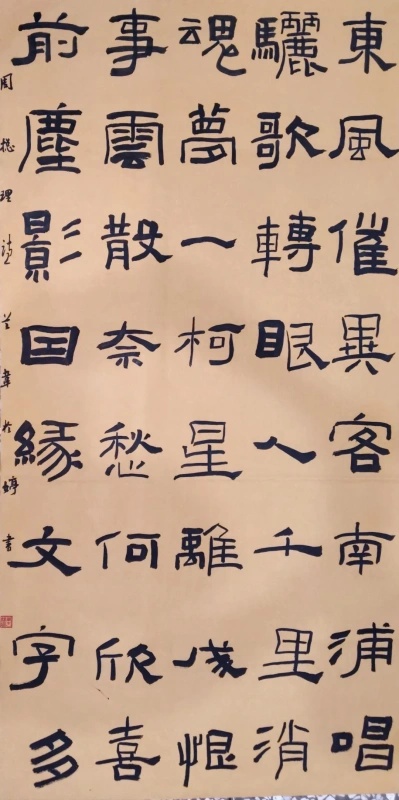 東風催異客南浦唱
驪歌轉眼人千里消
魂夢一柯星離成恨
事雲散奈愁何欣喜
前塵影因緣文字多
周總理詩 書